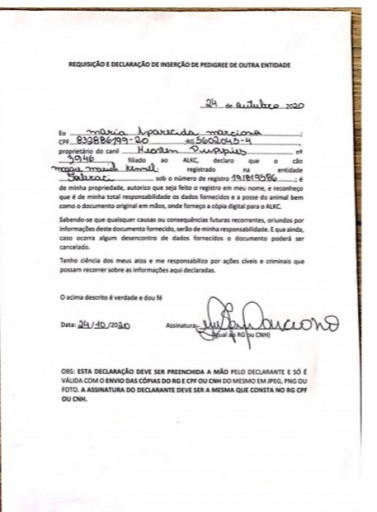 REQUISIÇÃO E DECLARAÇÃO DE INSERÇÃO DE PEDIGREE DE OUTRA ENTIDADE
24 de outubro 2020
Eu maria Aparecida marciona ;
CPF 832886799-20 RG 5602045-4
proprietário do canil Puppies nº
3946 filiado ao ALKC, declaro que o cão
Kennel registrado na entidade
sob o número de registro 191819586 ; é
de minha propriedade, autorizo que seja feito o registro em meu nome, e reconheço
que é de minha total responsabilidade os dados fornecidos e a posse do animal bem
como o documento original em mãos, onde forneço a cópia digital para o ALKC.
Sabendo-se que quaisquer causas ou consequências futuras recorrentes, oriundos por
informações deste documento fornecido, serão de minha responsabilidade. E que ainda,
caso ocorra algum desencontro de dados fornecidos o documento poderá ser
cancelado.
Tenho ciência dos meus atos e me responsabilizo por ações cíveis e criminais que
possam recorrer as informações aqui declaradas.
O acima descrito é verdade e dou fé
Data: 24/10/2020 Assinatura:
(igual ao RG ou CNH)
OBS: ESTA DECLARAÇÃO DEVE SER PREENCHIDA A MÃO PELO DECLARANTE E SÓ É
VÁLIDA COM O ENVIO DAS CÓPIAS DO RG E CPF OU CNH DO MESMO EM JPEG, PNG OU
FOTO. A ASSINATURA DO DECLARANTE DEVE SER A MESMA QUE CONSTA NO RG CPF
OU CNH.